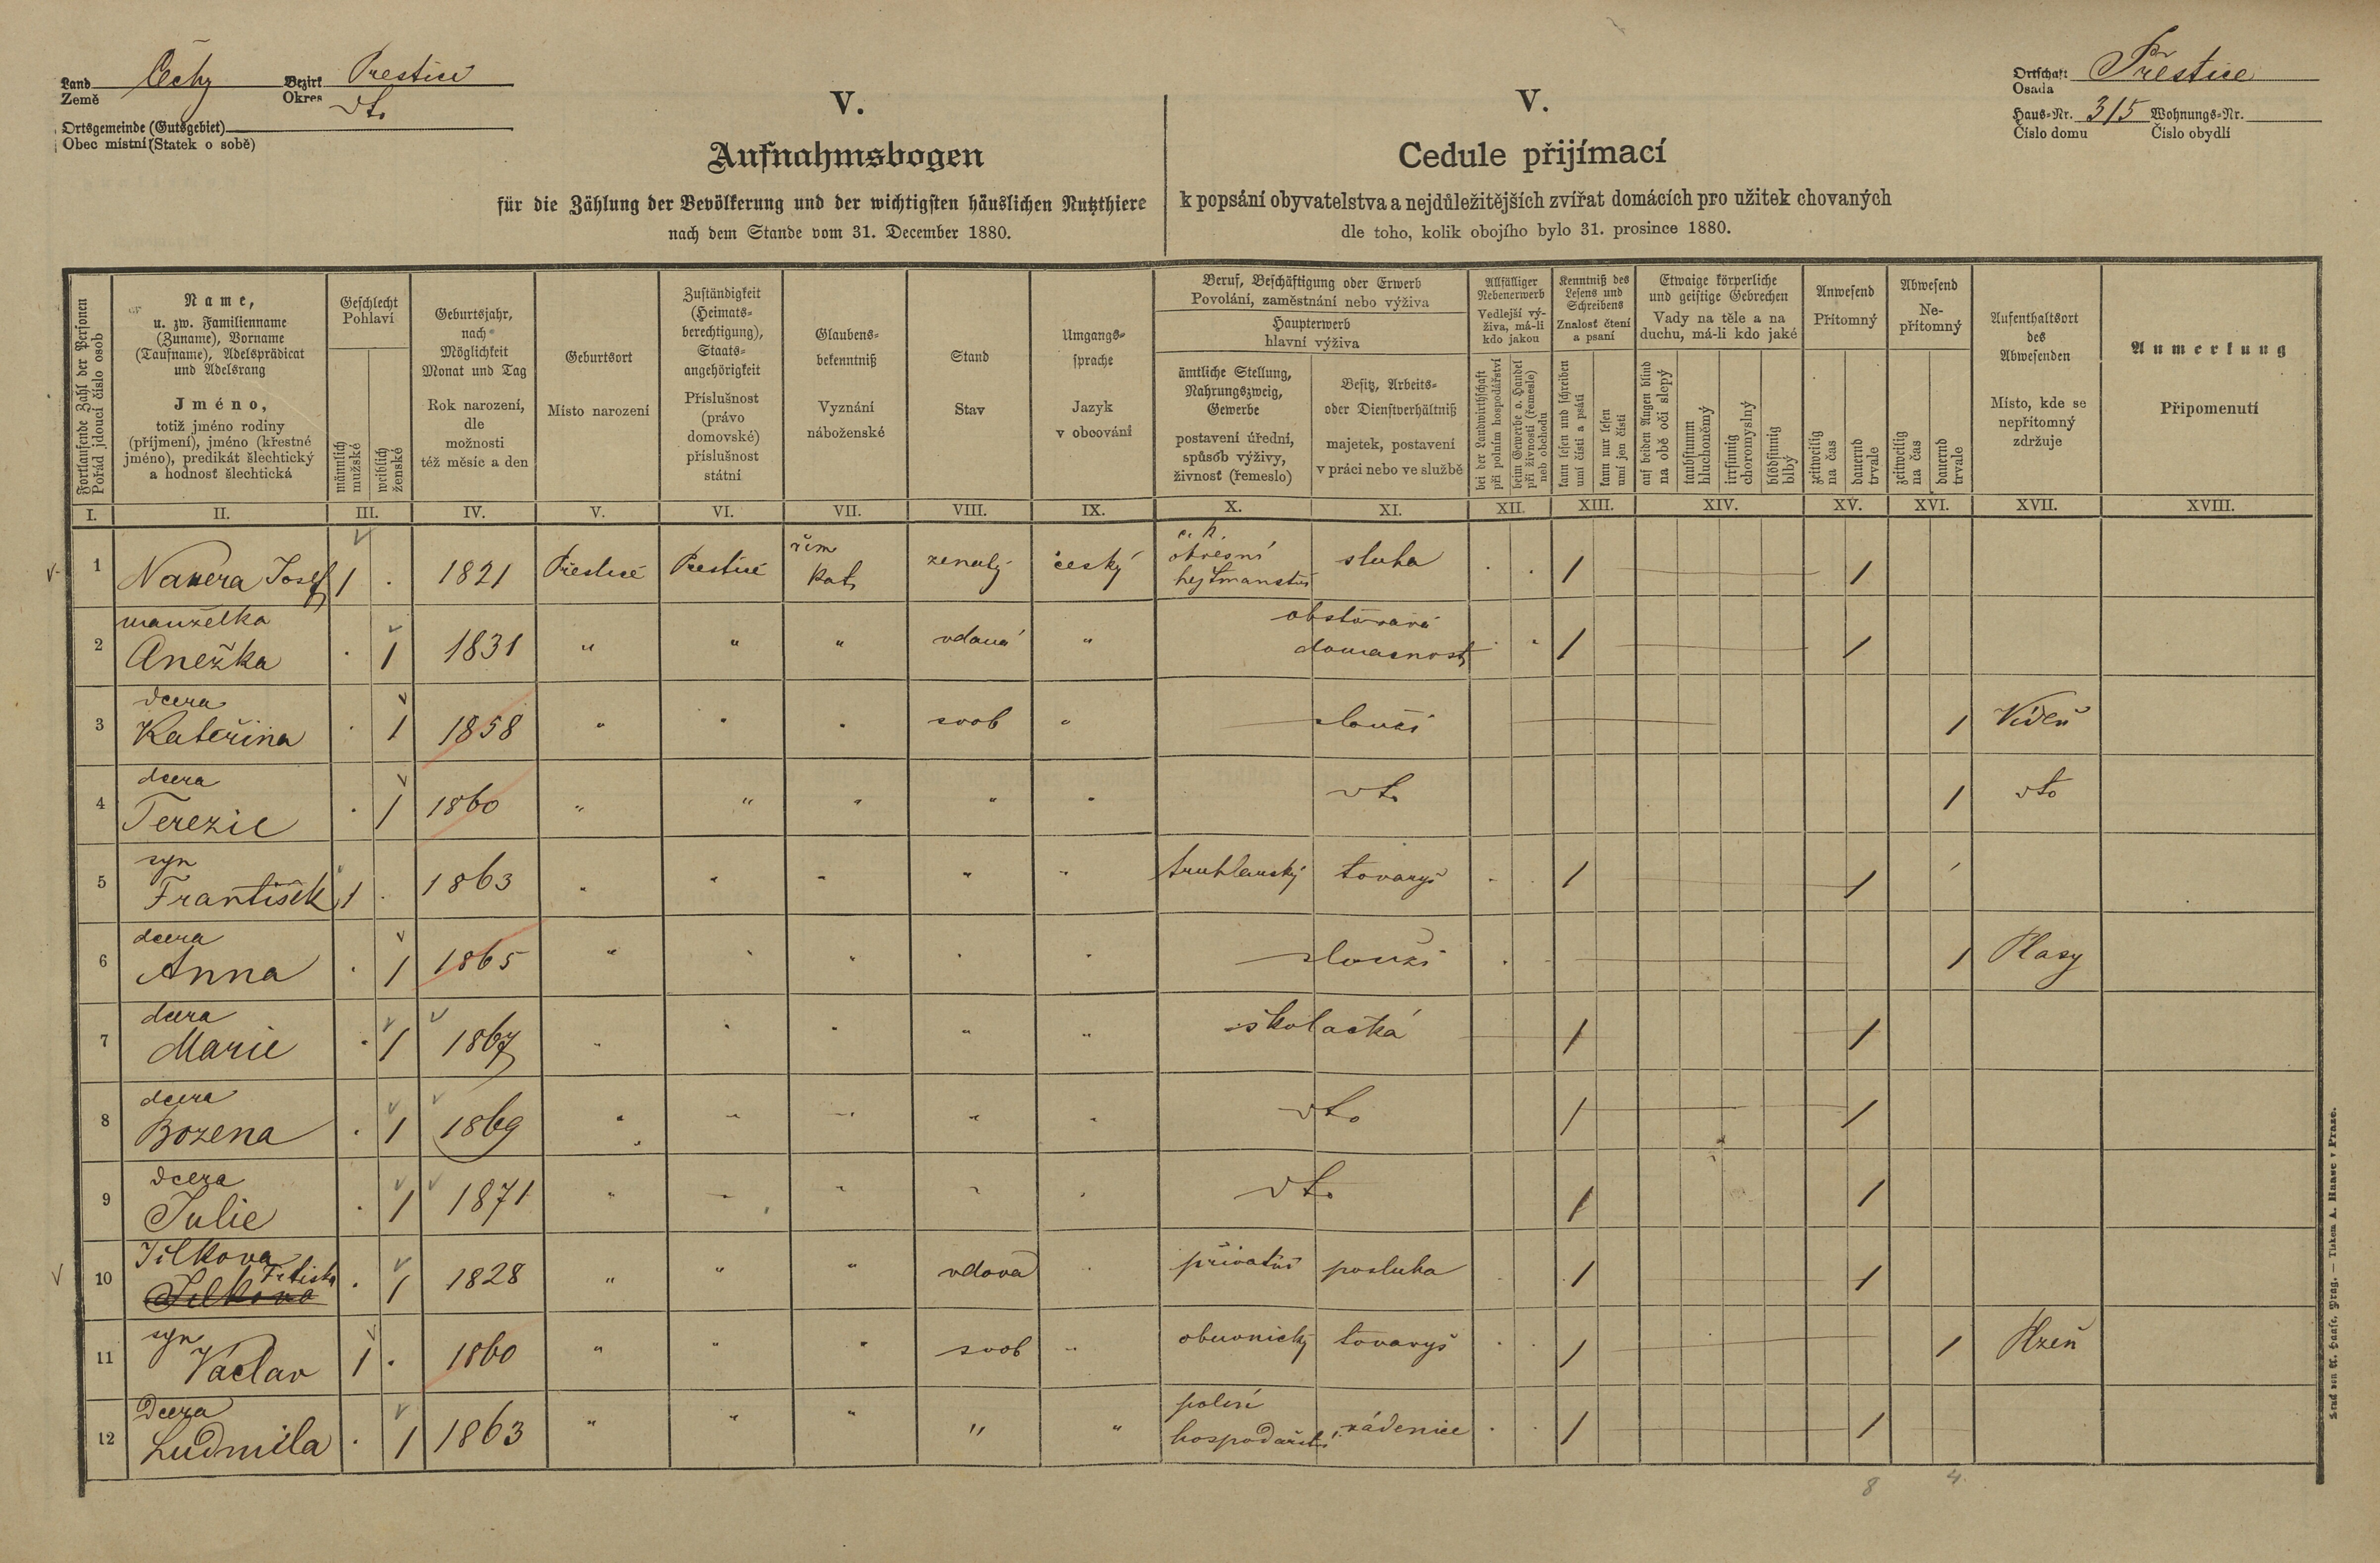 Land Čechy Bezirk Prestice
Země Okres
dto
Ortsgemeinde (Gutsgebiet)
Obec místní (Statek o sobě)
Ortschaft Přestice
Osada
Haus-Nr. 315 Wohnungs-Nr.
Číslo domu Číslo obydlí
V.
Aufnahmsbogen
für die Zählung der Bevölkerung und der wichtigsten häuslichen Nutzthiere
nach dem Stande vom 31. December 1880.
V.
Cedule přijímací
k popsání obyvatelstva a nejdůležitějších zvířat domácích pro užitek chovaných
dle toho, kolik obojího bylo 31. prosince 1880.
Fortlaufende Zahl der Personen
Pořád jdoucí číslo osob
Name,
u. zw. Familienname
(Zuname), Vorname
(Taufname), Adelsprädicat
und Adelsrang
Jméno,
totiž jméno rodiny
(příjmení), jméno (křestné
jméno), predikát šlechtický
a hodnosť šlechtická
Geschlecht
Pohlaví
männlich
mužské
weiblich
ženské
Geburtsjahr,
nach
Möglichkeit
Monat und Tag
Rok narození,
dle
možnosti
též měsíc a den
Geburtsort
Místo narození
Zuständigkeit
(Heimats-
berechtigung),
Staats-
angehörigkeit
Příslušnost
(právo
domovské)
příslušnost
státní
Glaubens-
bekenntniß
Vyznání
náboženské
Stand
Stav
Umgangs-
sprache
Jazyk
v obcování
Beruf, Beschäftigung oder Erwerb
Povolání, zaměstnání nebo výživa
Haupterwerb
hlavní výživa
ämtliche Stellung,
Nahrungszweig,
Gewerbe
postavení úřední,
spůsob výživy,
živnosť (řemeslo)
Besitz, Arbeits-
oder Dienstverhältniß
majetek, postavení
v práci nebo ve službě
Allfälliger
Nebenerwerb
Vedlejší vý-
živa, má-li
kdo jakou
bei der Landwirthschaft
při polním hospodářství
beim Gewerbe o. Handel
při živnosti (řemesle)
neb obchodu
Kenntniß des
Lesens und
Schreibens
Znalosť čtení
a psaní
kann lesen und schreiben
umí čísti a psáti
kann nur lesen
umí jen čísti
Etwaige körperliche
und geistige Gebrechen
Vady na těle a na
duchu, má-li kdo jaké
auf beiden Augen blind
na obě oči slepý
taubstumm
hluchoněmý
irrsinnig
choromyslný
blödsinnig
blbý
Anwesend
Přítomný
zeitweilig
na čas
dauernd
trvale
Abwesend
Ne-
přítomný
zeitweilig
na čas
dauernd
trvale
Aufenthaltsort
des
Abwesenden
Místo, kde se
nepřítomný
zdržuje
Anmerkung
Připomenutí
I. II. III. IV. V. VI. VII. VIII. IX. X. XI. XII. XIII. XIV. XV. XVI. XVII. XVIII.
1 Josef 1 . 1821 Přestice Prestice řím kat. ženatý český c. k. okresní hejtmanství sluha . . 1 1
2 manželka Anežka . 1 1831 " " " vdaná " obstarává domacnost . " 1 1
3 dcera Kateřina . 1 1858 " " " svob " slouží 1 Vídeň
4 dcera Terezie . 1 1860 " " " " " dto 1 dto
5 syn František 1 . 1863 " " " " " truhlarský tovaryš . . 1 1
6 dcera Anna . 1 1865 " " " " " slouží . 1 Plasy
7 dcera Marie . 1 1867 " " " " " školačka 1 1
8 dcera Bozena . 1 1869 " " " " " dto 1 1
9 dcera Julie . 1 1871 " " " " " dto 1 1
10 Jílkova . 1 1828 " " " vdova " privatní posluha . . 1 1
11 syn Vaclav 1 . 1860 " " " svob " obuvnický tovaryš . . 1 1 Plzeň
12 Dcera Ludmila . 1 1863 " " " " " polní hospodařství nádenice . . 1 1
8 4
Druck von A. Haase, Prag. — Tiskem A. Haase v Praze.